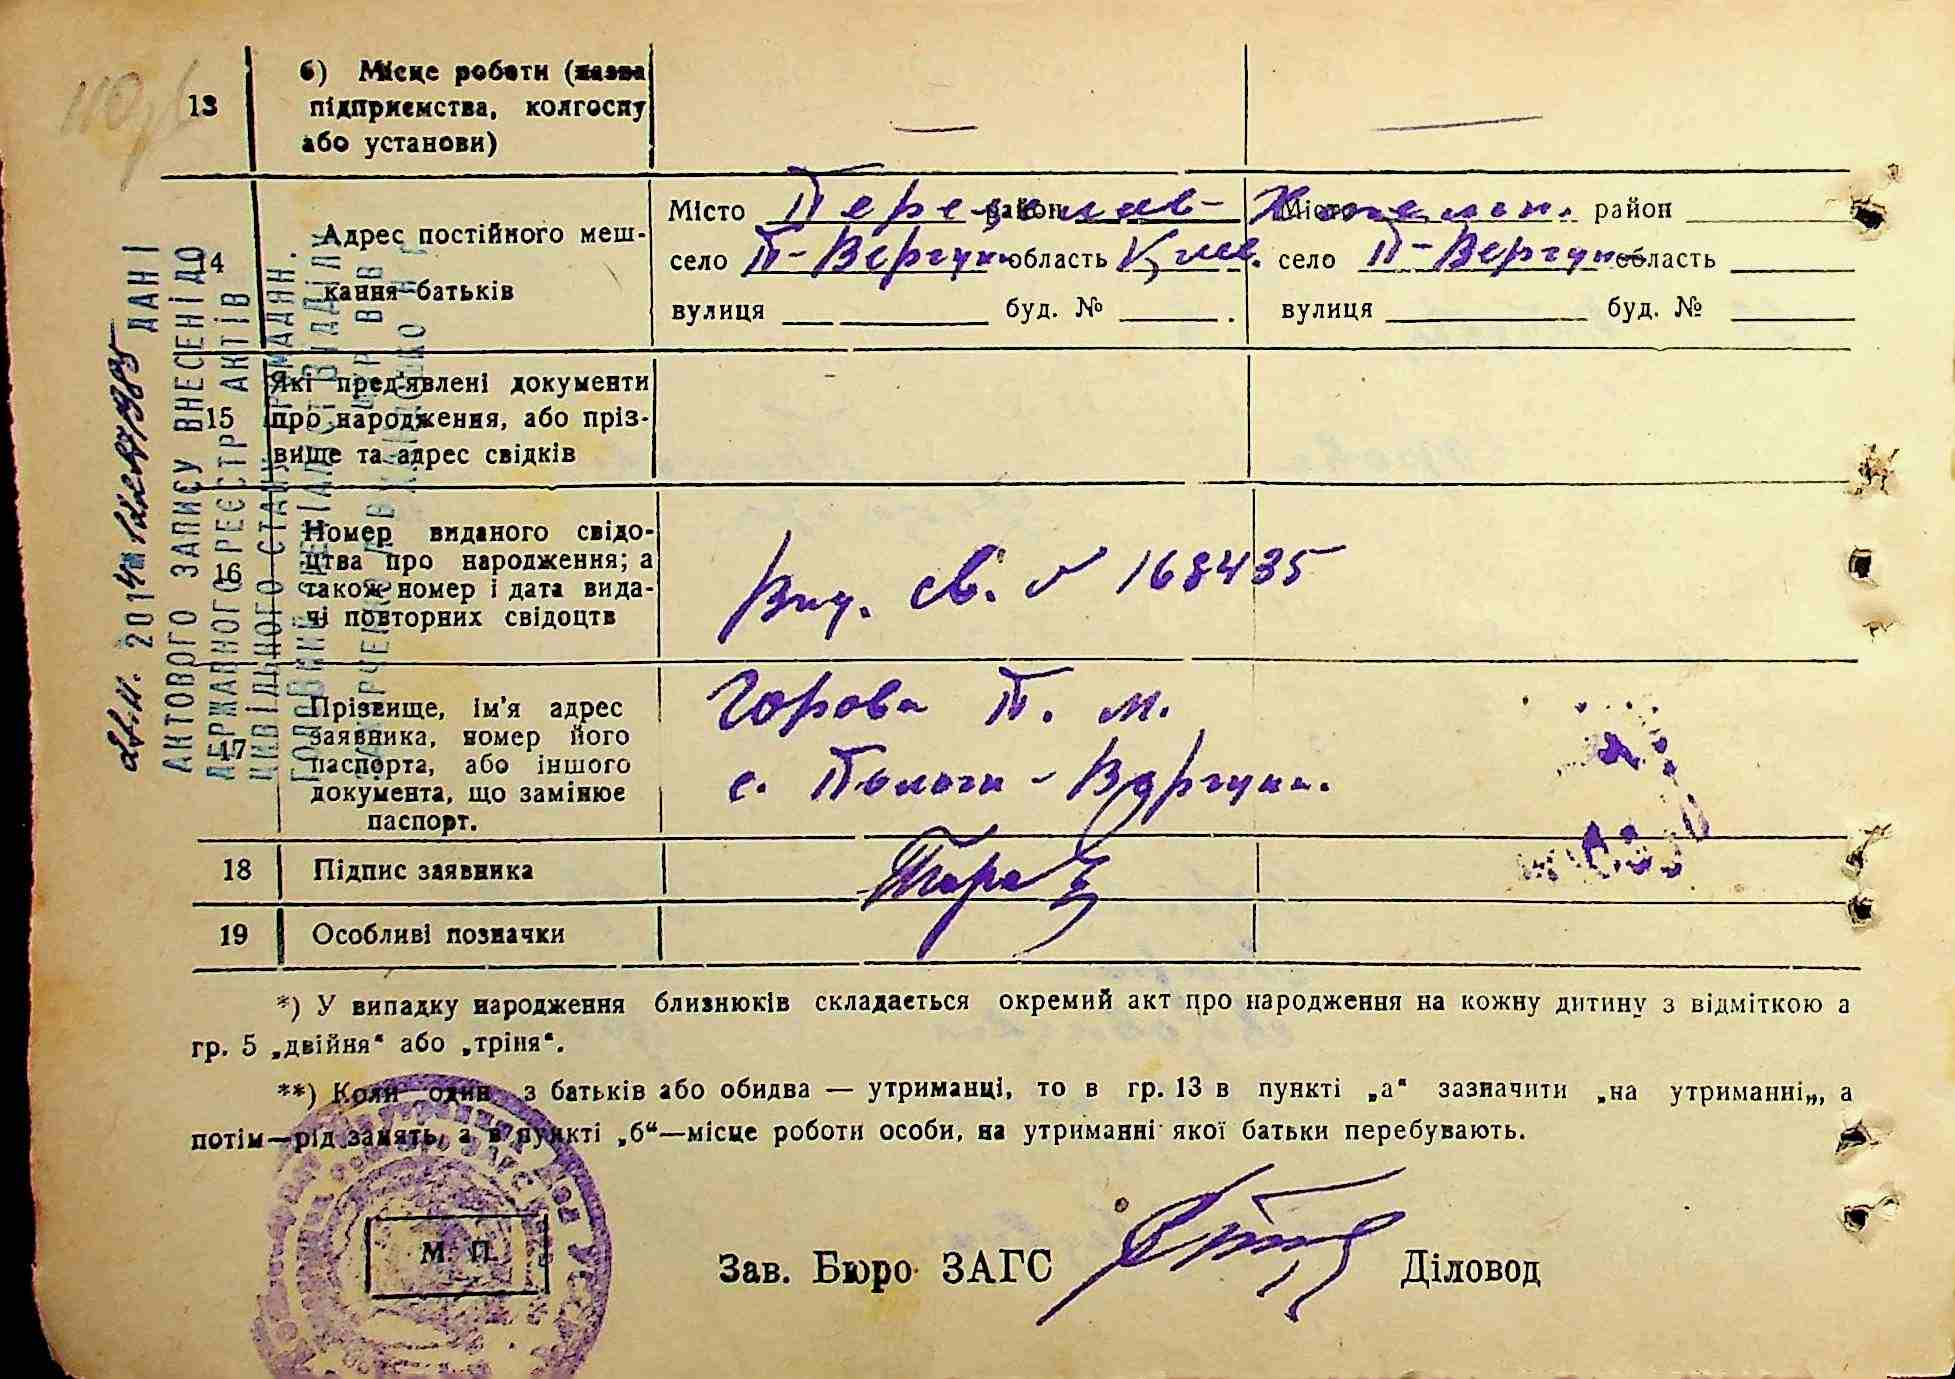 13
б) Місце роботи (назва
підприємства, колгоспу
або установи)
—
—
14
Адрес постійного меш-
кання батьків
Місто Переяслав- район
село П-Вергуни область Київ.
вулиця буд. №
Місто Хмельн. район
село П-Вергуни область
вулиця буд. №
15
Які пред'явлені документи
про народження, або пріз-
вище та адрес свідків
16
Номер виданого свідо-
цтва про народження; а
також номер і дата вида-
чі повторних свідоцтв
Вид. св. № 168435
17
Прізвище, ім'я адрес
заявника, номер його
паспорта, або іншого
документа, що замінює
паспорт.
Горова П. М.
с. Пологи-Вергуни.
18
Підпис заявника
19
Особливі позначки
*) У випадку народження близнюків складається окремий акт про народження на кожну дитину з відміткою а
гр. 5 „двійня“ або „трiня“.
**) Коли один з батьків або обидва — утриманці, то в гр. 13 в пункті „а“ зазначити „на утриманні„, а
потім—рід занять, а в пункті „б“—місце роботи особи, на утриманні якої батьки перебувають.
М. П.
Зав. Бюро ЗАГС
Діловод
2014 ДАНІ
АКТОВОГО ЗАПИСУ ВНЕСЕНІ ДО
ДЕРЖАВНОГО РЕЄСТР АКТІВ
ЦИВІЛЬНОГО СТАНУ ГРОМАДЯН.
ГОЛОВНИЙ СПЕЦІАЛІСТ ВІДДІЛ